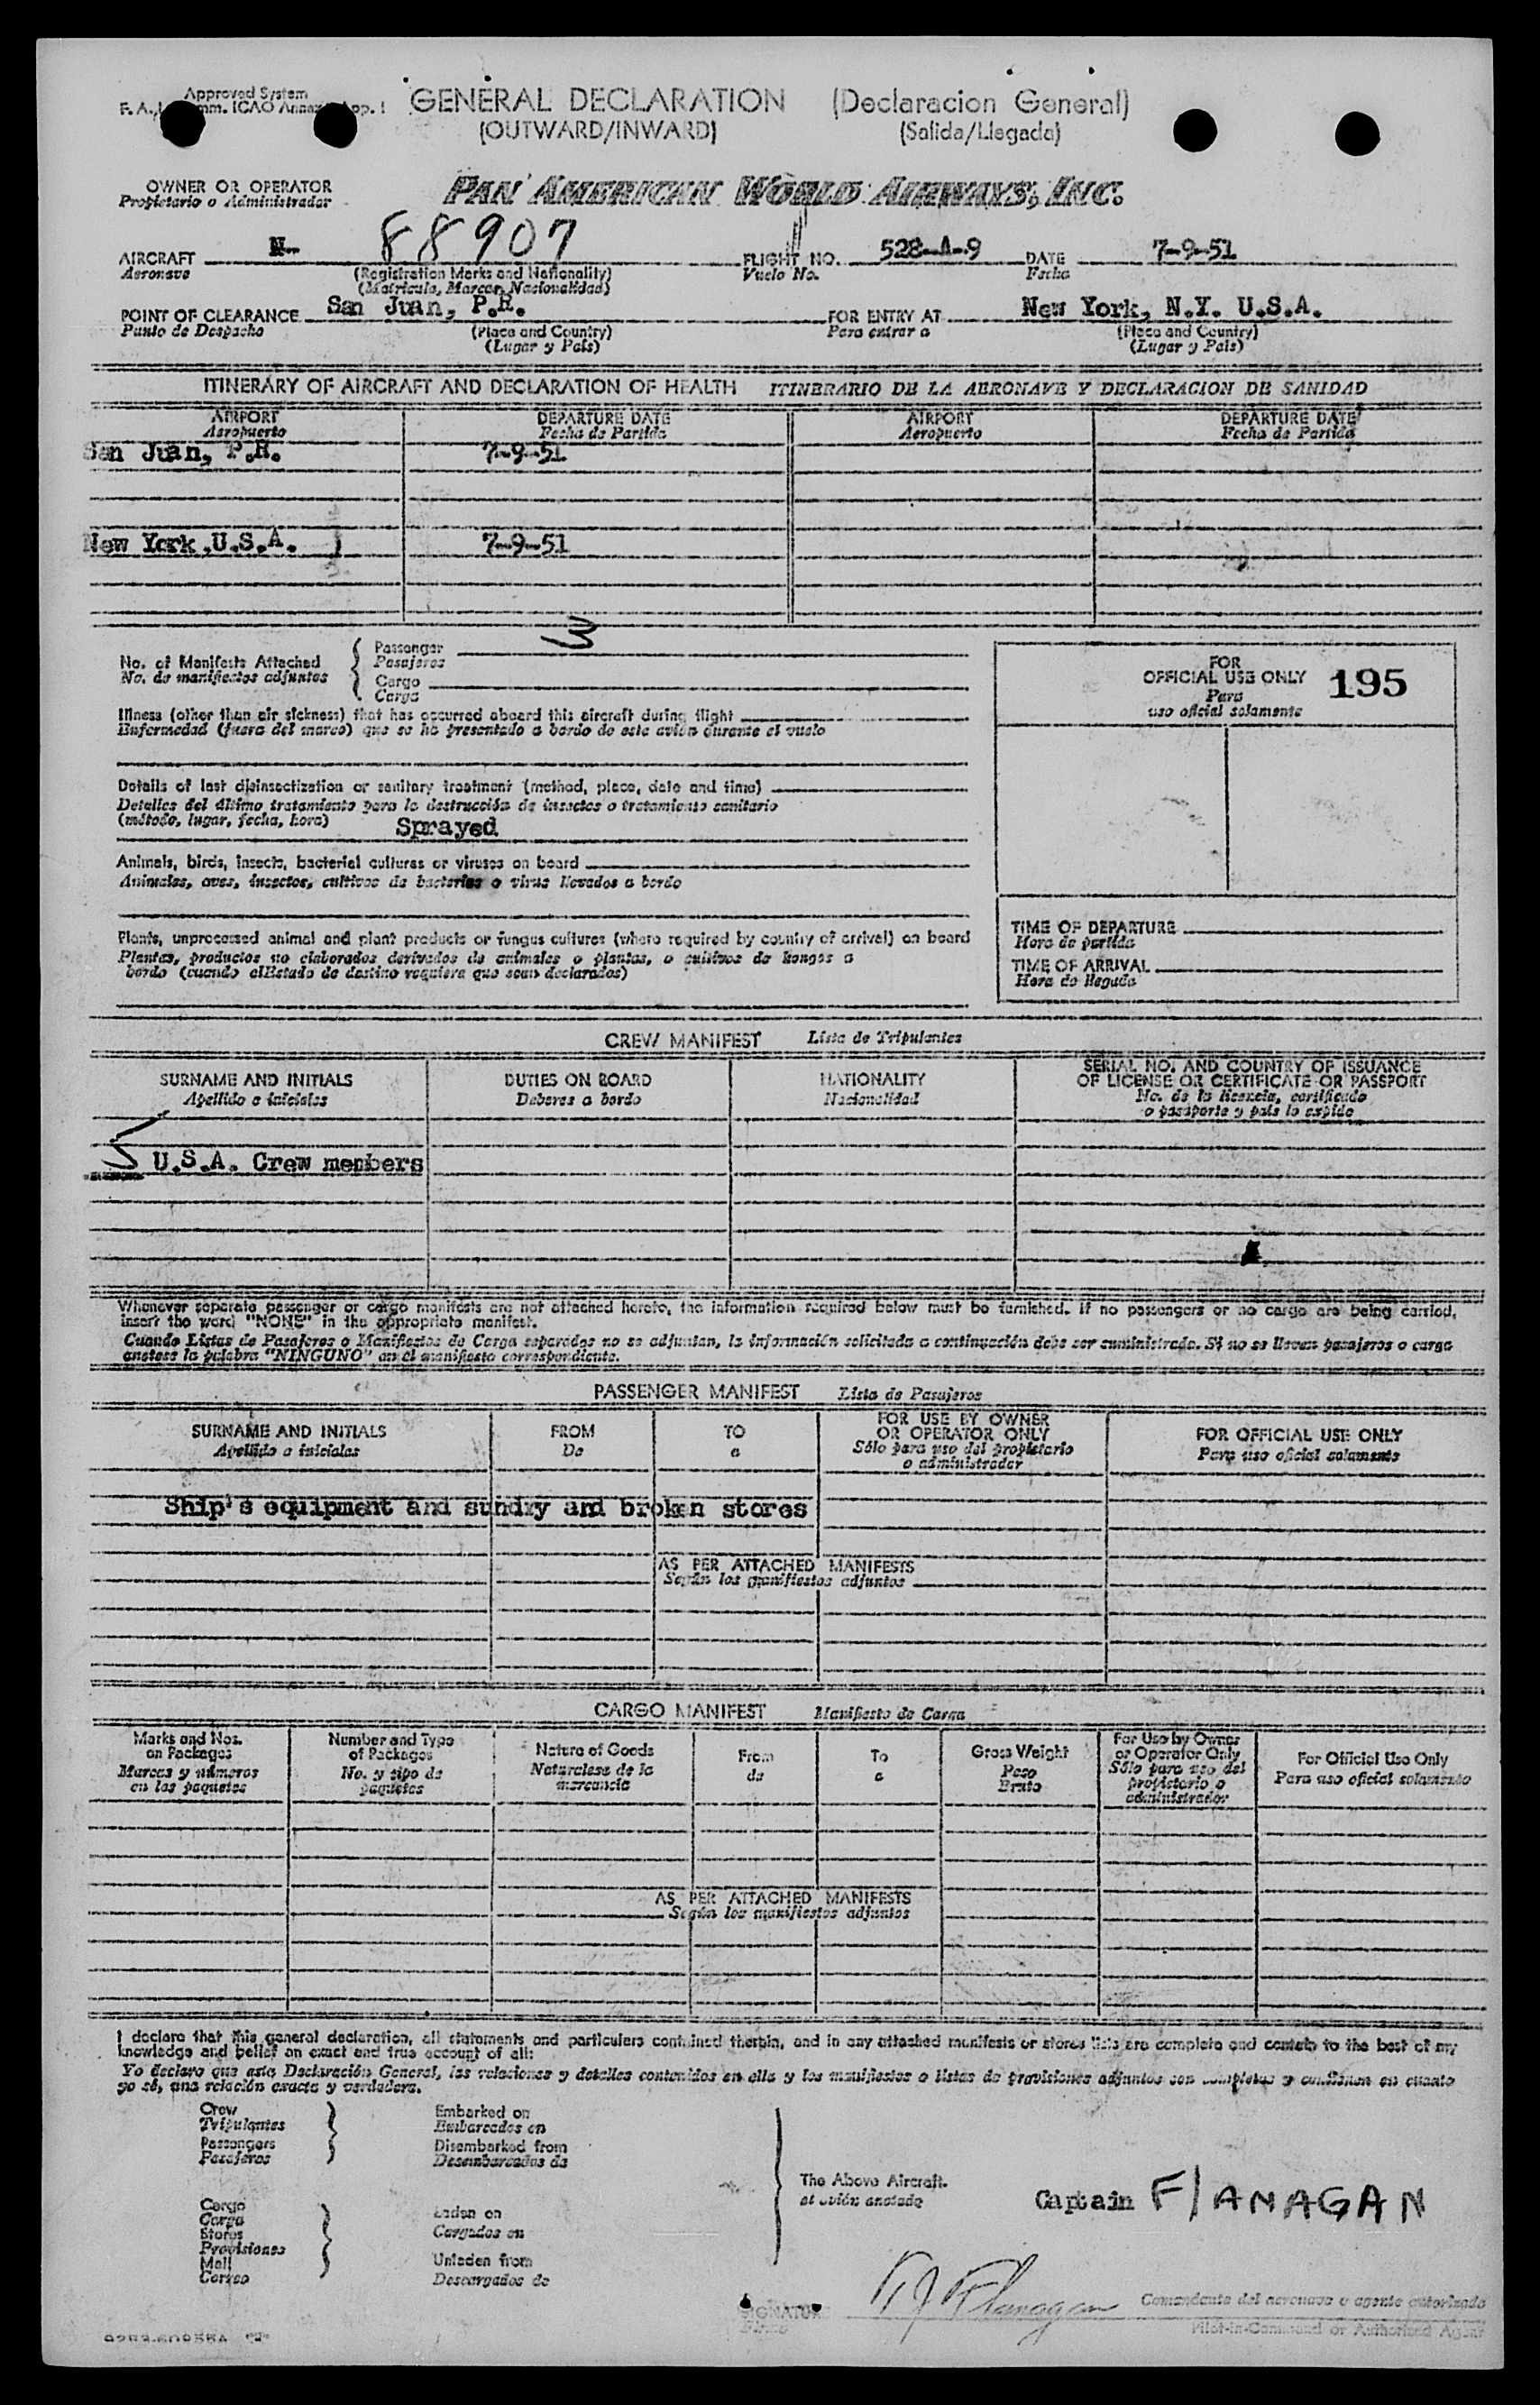 Approved System
GENERAL DECLARATION (Declaracion General)
(OUTWARD/INWARD) (Salida/Llegada)
OWNER OR OPERATOR PAN AMERICAN WORLD AIRWAYS, INC.
Propietario o Administrador
AIRCRAFT N- 88907 FLIGHT NO. 528-A-9 DATE 7-9-51
Aeronave (Registration Marks and Nationality) Vuelo No. Fecha
(Matricula, Marcas, Nacionalidad)
POINT OF CLEARANCE San Juan, P.R. FOR ENTRY AT New York, N.Y. U.S.A.
Punto de Despacho (Place and Country) Para entrar a (Place and Country)
(Lugar y País) (Lugar y País)
ITINERARY OF AIRCRAFT AND DECLARATION OF HEALTH ITINERARIO DE LA AERONAVE Y DECLARACION DE SANIDAD
AIRPORT DEPARTURE DATE AIRPORT DEPARTURE DATE
Aeropuerto Fecha de Partida Aeropuerto Fecha de Partida
San Juan, P.R. 7-9-51
New York, U.S.A. 7-9-51
No. of Manifests Attached
No. de manifiestos adjuntos
Passenger 3
Pasajeros
Cargo
Carga
FOR
OFFICIAL USE ONLY 195
Para
uso oficial solamente
Illness (other than air sickness) that has occurred aboard this aircraft during flight
Enfermedad (fuera del mareo) que se ha presentado a bordo de este avión durante el vuelo
Details of last disinsectization or sanitary treatment (method, place, date and time)
Detalles del último tratamiento para la destrucción de insectos o tratamiento sanitario
(método, lugar, fecha, hora) Sprayed
Animals, birds, insects, bacterial cultures or viruses on board
Animales, aves, insectos, cultivos de bacterias o virus llevados a bordo
Plants, unprocessed animal and plant products or fungus cultures (where required by country of arrival) on board
Plantas, productos no elaborados derivados de animales o plantas, o cultivos de hongos a
bordo (cuando elEstado de destino requiera que sean declarados)
TIME OF DEPARTURE
Hora de partida
TIME OF ARRIVAL
Hora de llegada
CREW MANIFEST Lista de Tripulantes
SURNAME AND INITIALS DUTIES ON BOARD NATIONALITY SERIAL NO. AND COUNTRY OF ISSUANCE
OF LICENSE OR CERTIFICATE OR PASSPORT
Apellido e iniciales Deberes a bordo Nacionalidad No. de la licencia, certificado
o pasaporte y país lo expide
5 U.S.A. Crew members
Whenever separate passenger or cargo manifests are not attached hereto, the information required below must be furnished. If no passengers or no cargo are being carried,
insert the word "NONE" in the appropriate manifest.
Cuando Listas de Pasajeros o Manifiestos de Carga separados no se adjuntan, la información solicitada a continuación debe ser suministrada. Si no se llevan pasajeros o carga
anotese la palabra "NINGUNO" en el manifiesto correspondiente.
PASSENGER MANIFEST Lista de Pasajeros
SURNAME AND INITIALS FROM TO FOR USE BY OWNER
OR OPERATOR ONLY FOR OFFICIAL USE ONLY
Apellido e iniciales De a Sólo para uso del propietario
o administrador Para uso oficial solamente
Ship's equipment and sundry and broken stores
AS PER ATTACHED MANIFESTS
Según los manifiestos adjuntos
CARGO MANIFEST Manifiesto de Carga
Marks and Nos.
on Packages
Marcas y números
en los paquetes
Number and Type
of Packages
No. y tipo de
paquetes
Nature of Goods
Naturaleza de la
mercancía
From
de
To
a
Gross Weight
Peso
Bruto
For Use by Owner
or Operator Only
Sólo para uso del
propietario o
administrador
For Official Use Only
Para uso oficial solamente
AS PER ATTACHED MANIFESTS
Según los manifiestos adjuntos
I declare that this general declaration, all statements and particulars contained therein, and in any attached manifests or stores lists are complete and contain to the best of my
knowledge and belief an exact and true account of all:
Yo declaro que esta Declaración General, las relaciones y detalles contenidos en ella y los manifiestos o listas de provisiones adjuntos son completos y contienen en cuanto
yo sé, una relación exacta y verdadera.
Crew
Tripulantes
Passengers
Pasajeros
Embarked on
Embarcados en
Disembarked from
Desembarcados de
Cargo
Carga
Stores
Provisiones
Mail
Correo
Laden on
Cargados en
Unladen from
Descargados de
The Above Aircraft.
el avión anotado
Captain FlANAGAN
SIGNATURE Flanagan Comandante del aeronave o agente autorizado
Pilot-in-Command or Authorized Agent